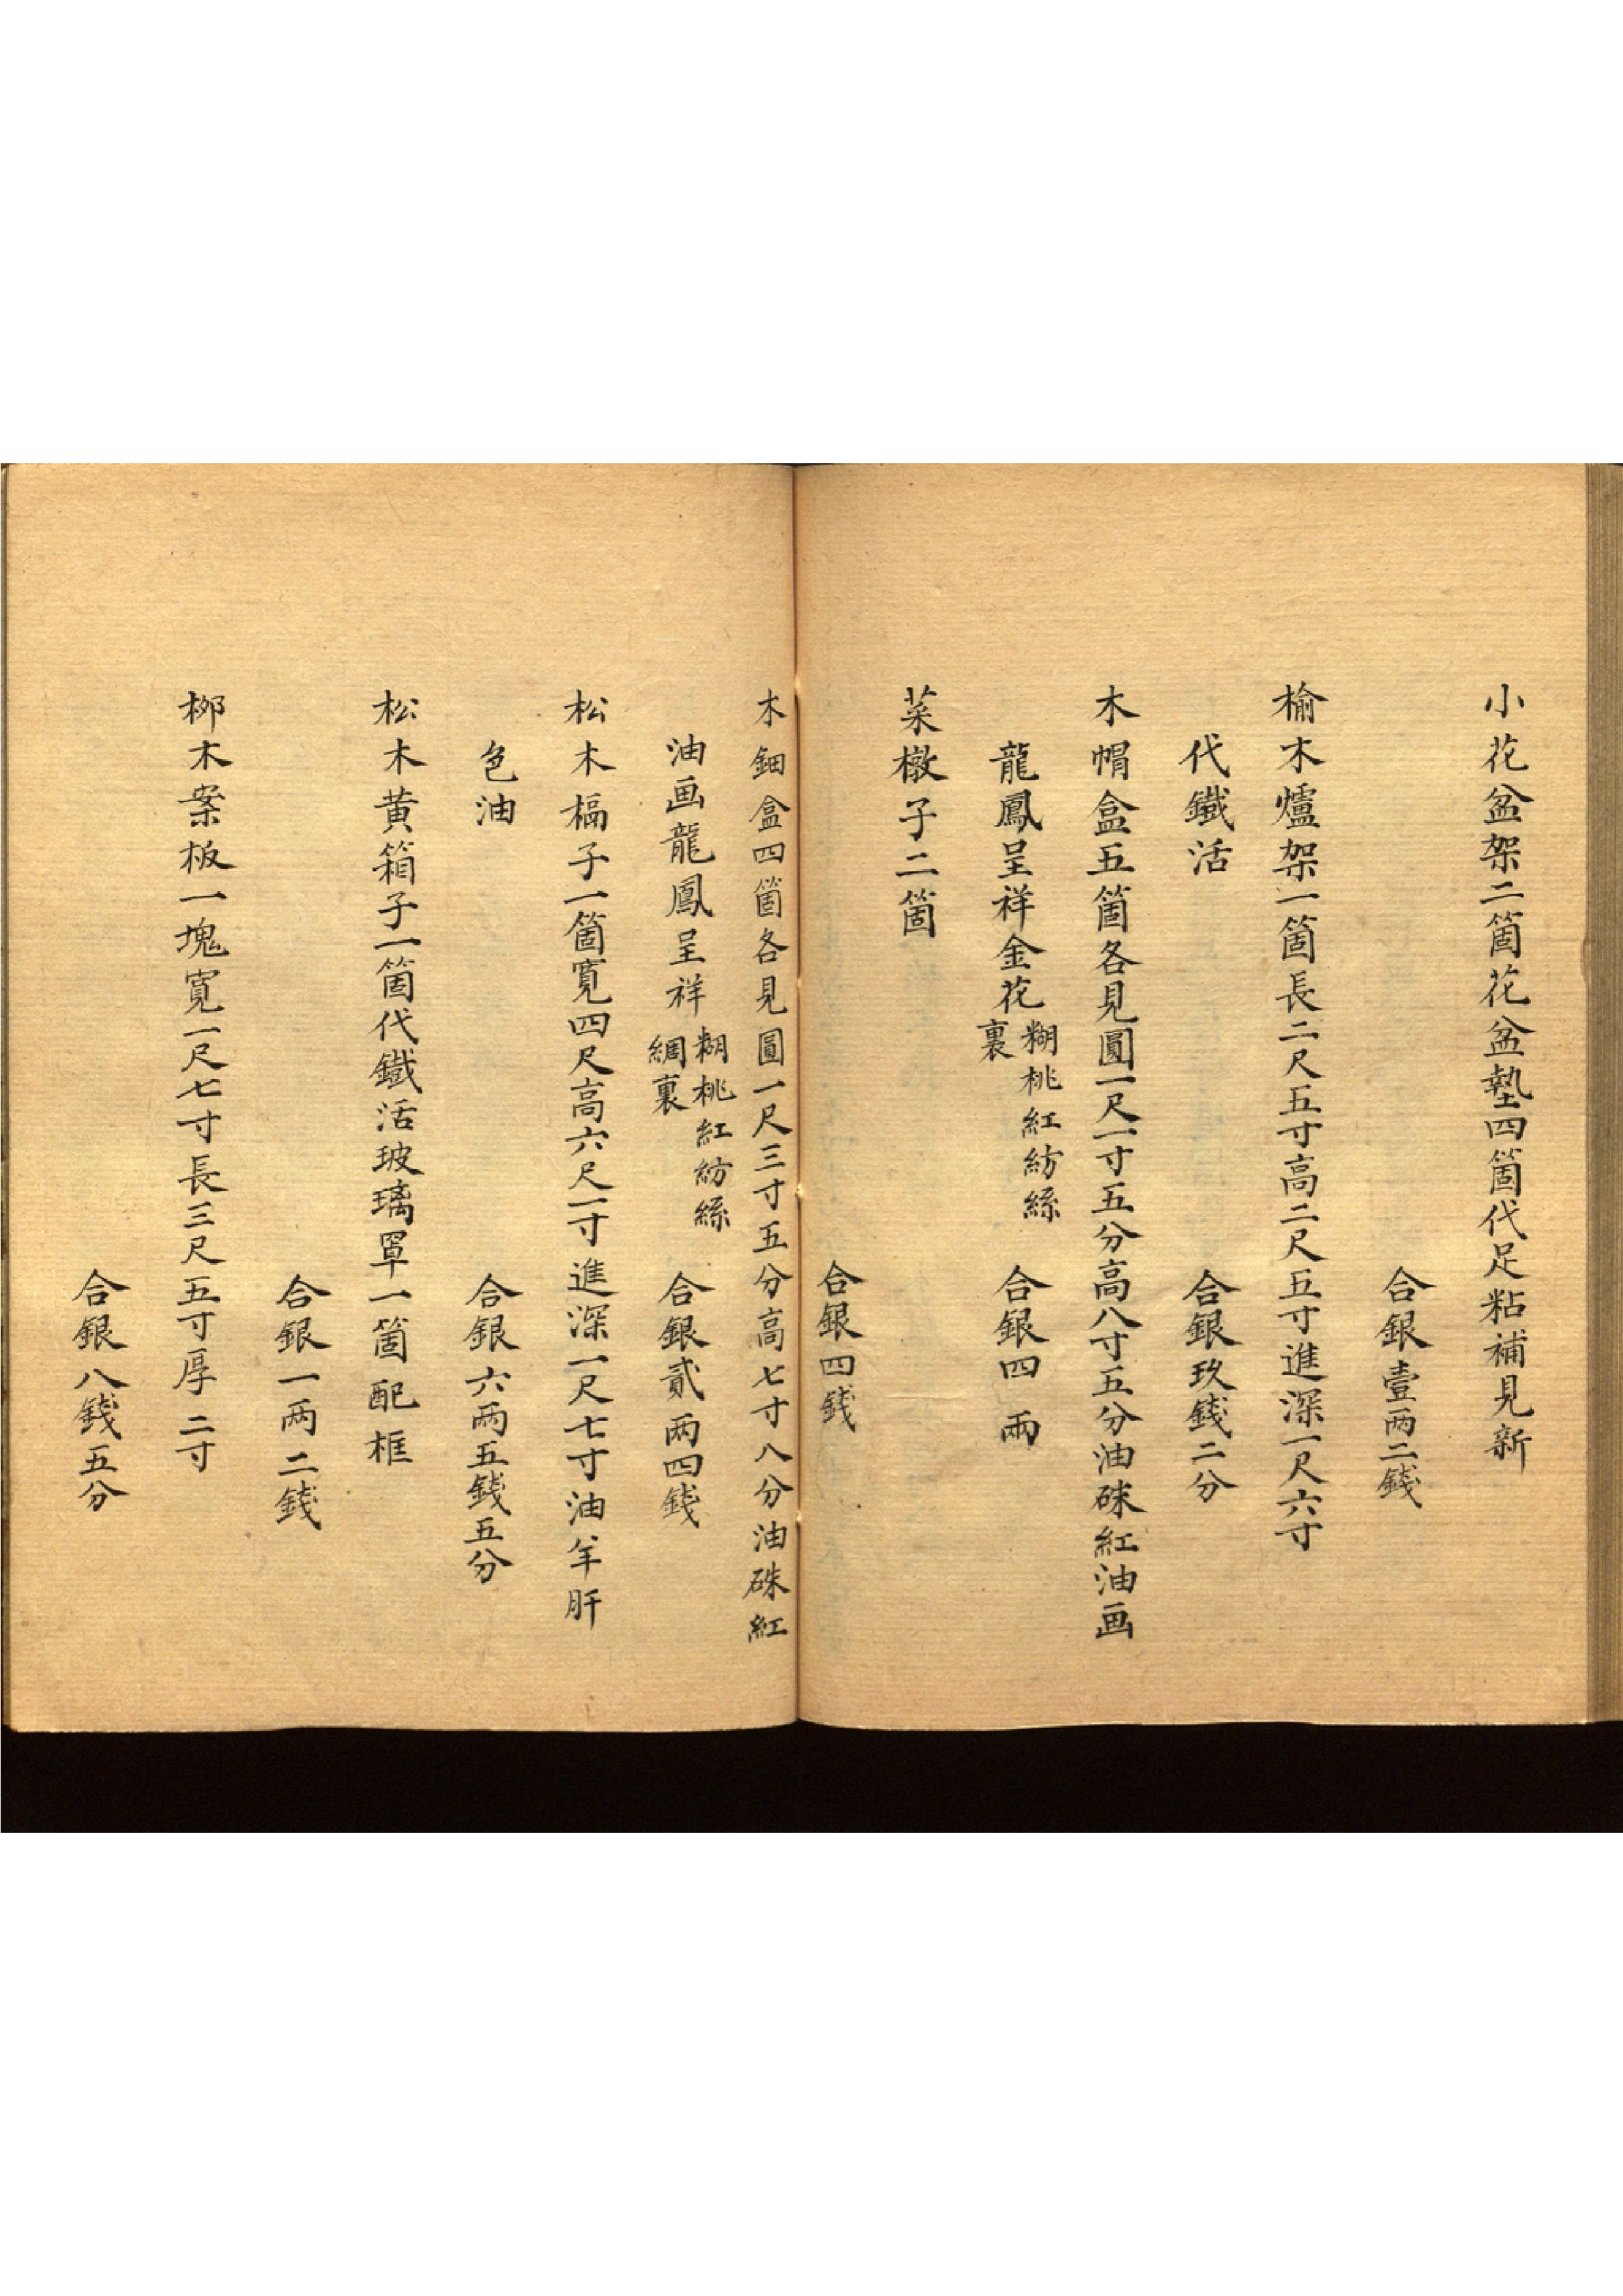 小花盆架二箇花盆墊四箇代足粘補見新
合銀壹两二錢
榆木爐架一箇長二尺五寸高二尺五寸進深一尺六寸
代鐵活
合銀玖錢二分
木帽盒五箇各見圓一尺一寸五分高八寸五分油硃紅油画
龍鳳呈祥金花糊桃紅紡絲
裏
合銀四兩
菜墩子二箇
合銀四錢
木鈿盒四箇各見圓一尺三寸五分高七寸八分油硃紅
油画龍鳳呈祥糊桃紅紡絲
綢裏
合銀貳两四錢
松木槅子一箇寬四尺高六尺一寸進深一尺七寸油羊肝
色油
合銀六两五錢五分
松木黄箱子一箇代鐵活玻璃罩一箇配框
合銀一两二錢
柳木案板一塊寬一尺七寸長三尺五寸厚二寸
合銀八錢五分